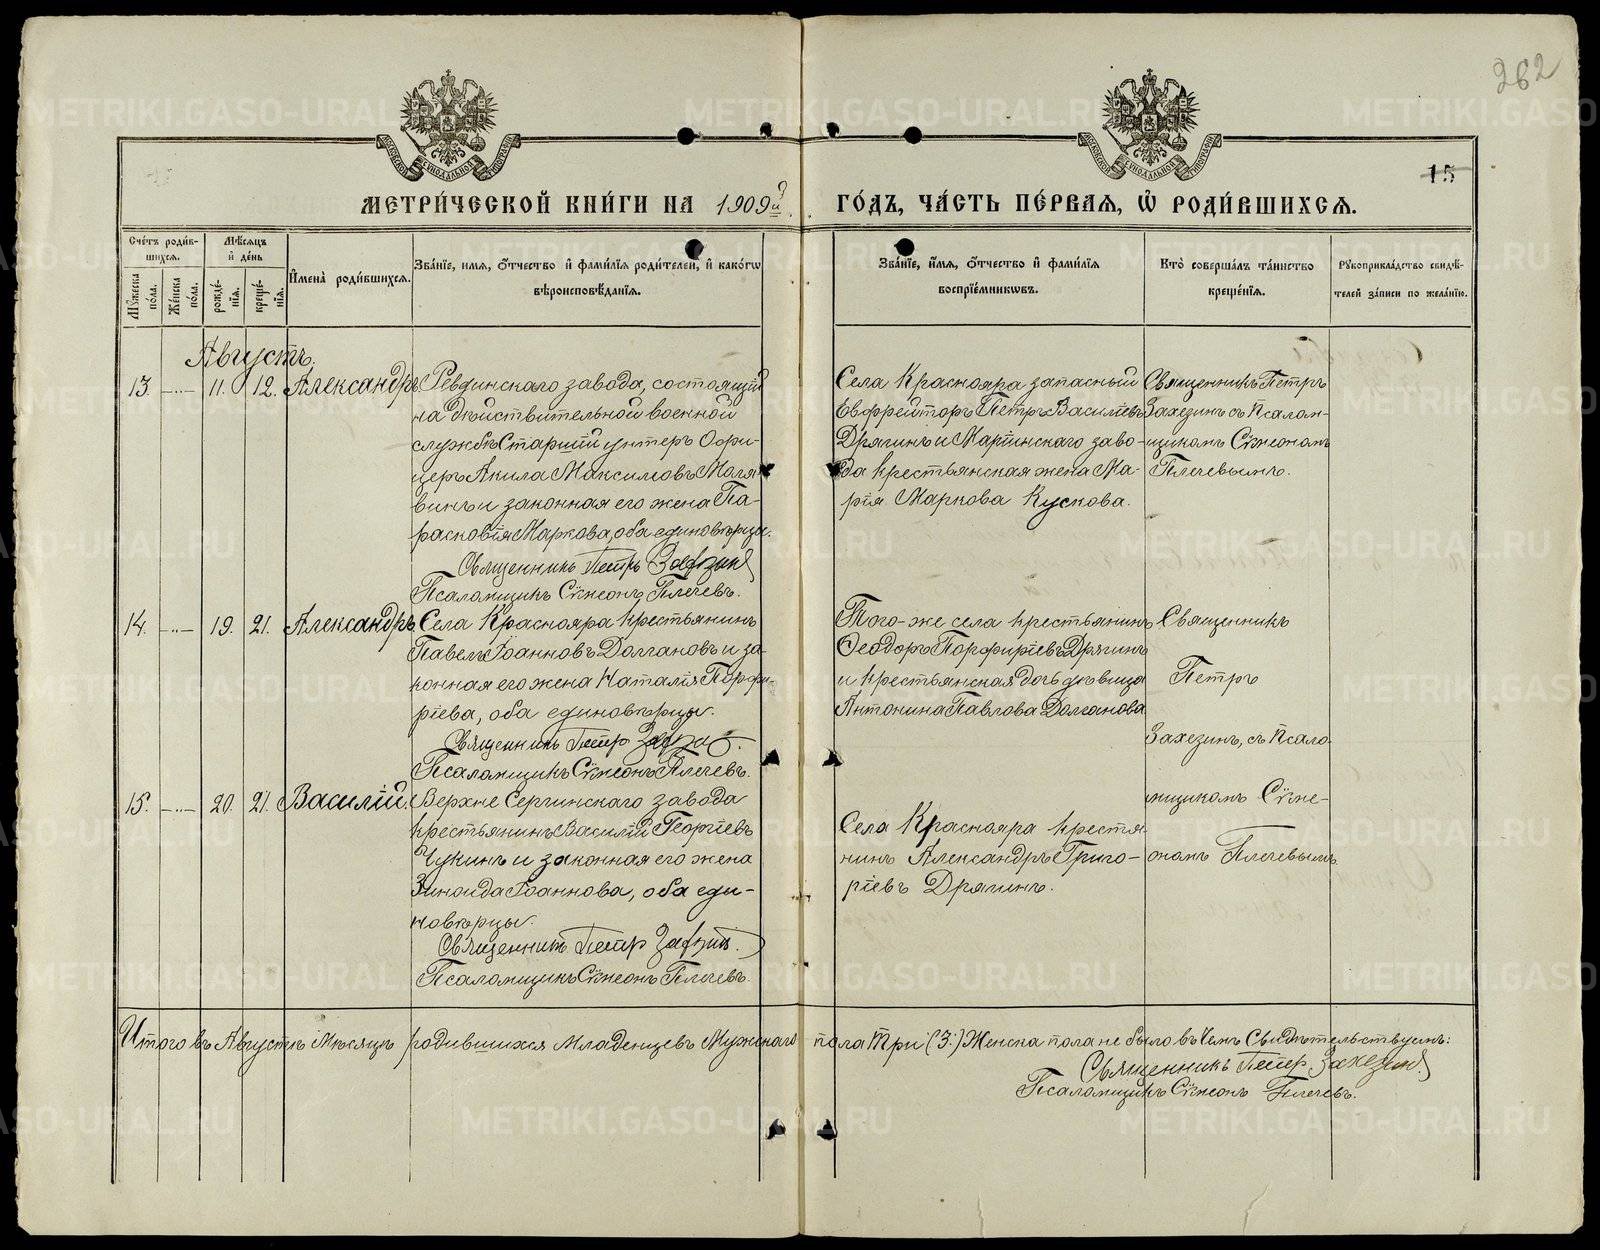 262
15
МЕТРИ́ЧЕСКОЙ КНИ́ГИ НА 1909й
ГО́ДЪ, ЧА́СТЬ ПЕ́РВАѦ, Ѡ РОДИ́ВШИХСѦ.
Сче́тъ роди́в-
шихсѧ.
Мѣ́сѧцъ
и҆ де́нь
Мꙋ́жеска
по́ла.
Же́нска
по́ла.
рожде́-
нїѧ.
креще́-
нїѧ.
И҆мена̀ роди́вшихсѧ.
Зва́нїе, и҆́мѧ, ѻ҆́тчество и҆ фами́лїѧ роди́телей, и҆ како́гѡ
вѣроисповѣ́данїѧ.
Зва́нїе, и҆́мѧ, ѻ҆́тчество и҆ фами́лїѧ
воспрїе́мникѡвъ.
Кто̀ соверша́лъ та́инство
креще́нїѧ.
Рꙋкоприкла́дство свидѣ́-
телей за́писи по жела́нїю.
Августъ.
13. —..— 11. 12. Александръ
Ревдинскаго завода, состоящій
на дѣйствительной военной
службѣ Старшій унтеръ Офи-
церъ Акила Максимовъ Маля-
винъ и законная его жена Па-
расковія Маркова, оба единовѣрцы.
Священникъ Петръ Захезинъ
Псаломщикъ Сѵмеонъ Плечевъ.
Села Краснояра запасный
Евфрейторъ Петръ Василіевъ
Дрягинъ и Маріинскаго заво-
да крестьянская жена Ма-
рія Маркова Кускова.
Священникъ Петръ
Захезинъ съ Псалом-
щикомъ Сѵмеономъ
Плечевымъ.
14. —..— 19. 21. Александръ
Села Краснояра крестьянинъ
Павелъ Іоанновъ Долгановъ и за-
конная его жена Наталія Порфи-
ріева, оба единовѣрцы.
Священникъ Петръ Захезинъ.
Псаломщикъ Сѵмеонъ Плечевъ.
Того-же села крестьянинъ
Ѳеодоръ Порфиріевъ Дрягинъ
и крестьянская дочь дѣвица
Антонина Павлова Долганова
Священникъ
Петръ
Захезинъ, съ Псало-
мщикомъ Сѵме-
ономъ Плечевымъ.
15. —..— 20. 21. Василій.
Верхне Сергинскаго завода
крестьянинъ Василій Георгіевъ
Чукинъ и законная его жена
Зиноида Іоаннова, оба еди-
новѣрцы.
Священникъ Петръ Захезинъ.
Псаломщикъ Сѵмеонъ Плечевъ.
Села Краснояра крестя-
нинъ Александръ Григо-
ріевъ Дрягинъ.
Итого въ Августѣ мѣсяцѣ родившихся младенцевъ Мужскаго пола три (3.) Женска пола не было въ чемъ Свидѣтельствуемъ:
Священникъ Петръ Захезинъ
Псаломщикъ Сѵмеонъ Плечевъ.